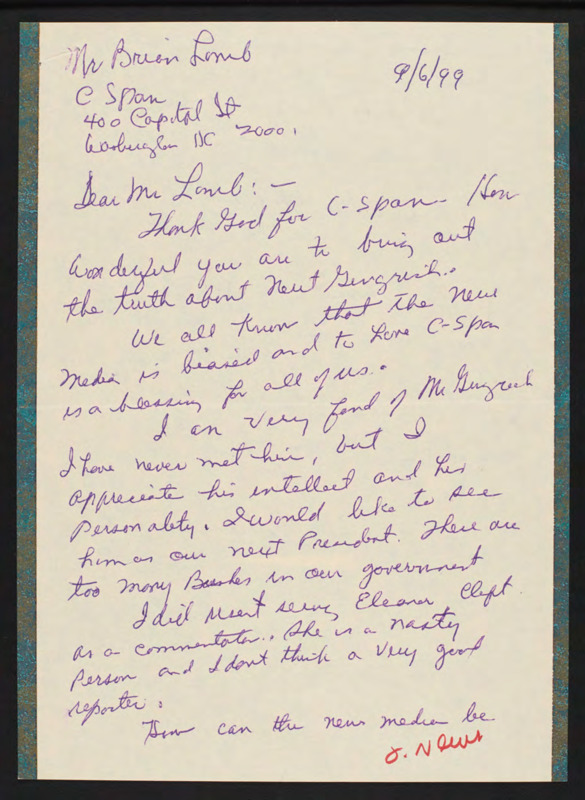 Mr Brian Lamb
9/6/99
C Span
400 Capital St
Washington DC 20001
Dear Mr Lamb: -
Thank God for C-Span - How
wonderful you are to bring out
the truth about Newt Gingrich.
We all know that the new
Media is biased and to have C-Span
is a blessing for all of us.
I am very fond of Mr Gingrich
I have never met him, but I
appreciate his intellect and his
personality. I would like to see
him as our next President. There are
too many Bushes in our government
I did resent seeing Eleanor Clift
as a commentator. She is a nasty
person and I dont think a very good
reporter.
How can the news media be
N. Gingrich